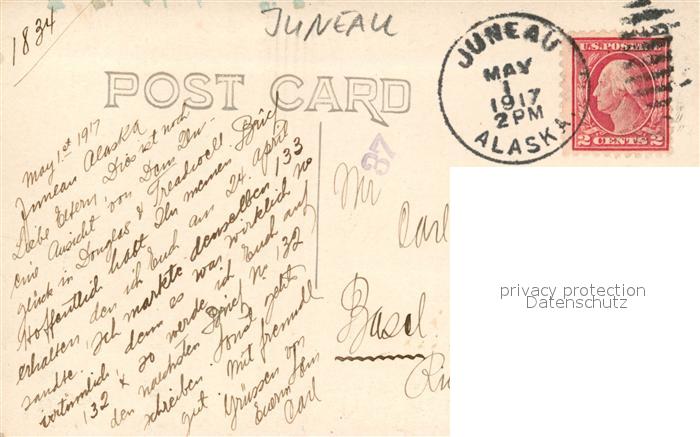 1834
JUNEAU
POST CARD
JUNEAU
MAY
1
1917
2 PM
ALASKA.
U.S. POSTAGE
2 CENTS 2
37
May 1st 1917
Juneau Alaska
Liebe Eltern, Dies ist noch
eine Ansicht von Dem Un-
glück in Douglas & Treadwell
Hoffentlich habt Ihr meinen Brief
erhalten den ich Euch am 24. April
sandte. Ich markte denselben 133
irrtümlich, denn es war wirklich No
132 & so werde ich Euch auf
den nächsten Brief No 132
schreiben. Sonst geht's
gut. Mit freundl
Grüssen von
Euerm Sohn
Carl
Mr
Carl
Basel
privacy protection
Datenschutz